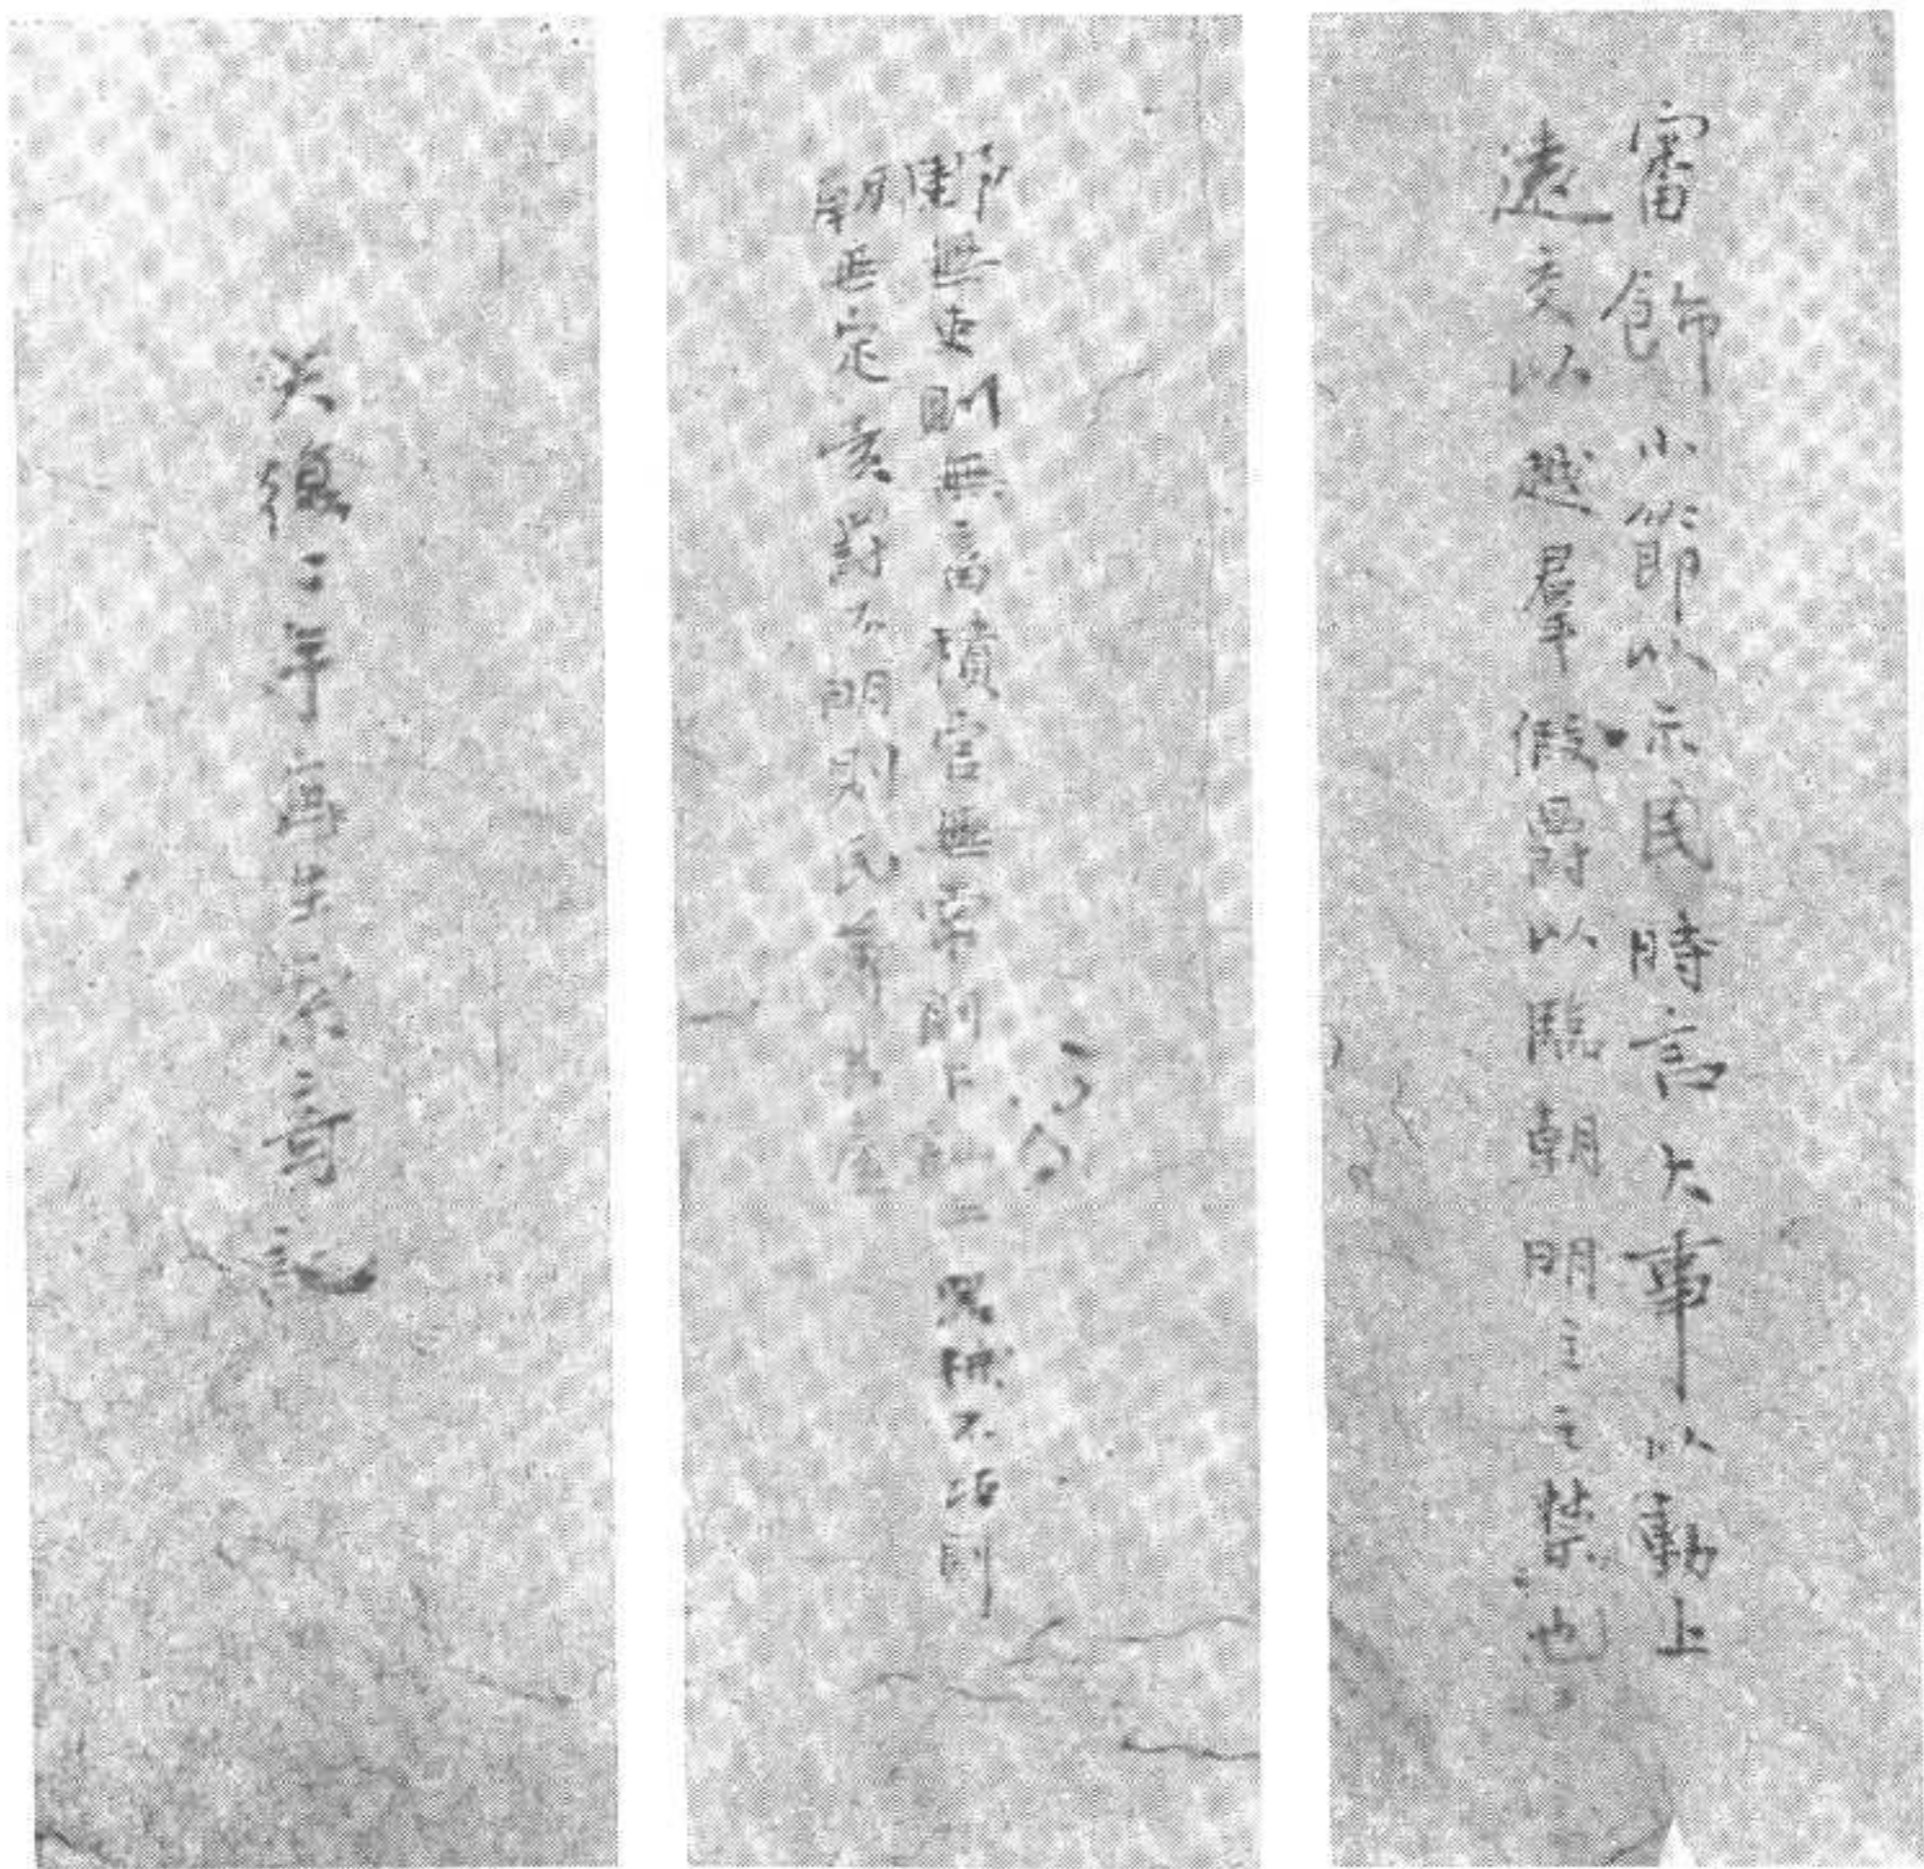 審飾小節以示民時言大事以動上
遠交以越羣假爵以臨朝明主之禁也
野無吏則無畜積官無常則下怨上器械不功則
朝無定賞罰不明則民輕其產
天復二年記